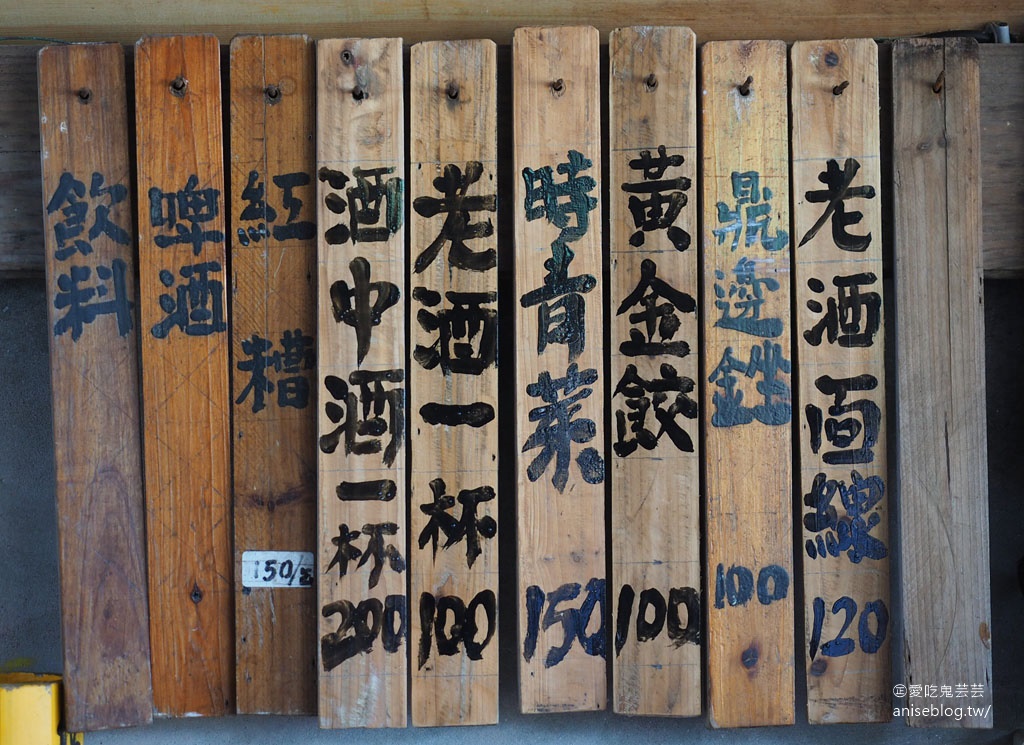 老酒面線 120
鼎邊銼 100
黃金餃 100
時青菜 150
老酒一杯 100
酒中酒一杯 200
紅糟 150/
啤酒
飲料
愛吃鬼芸芸
aniseblog.tw/